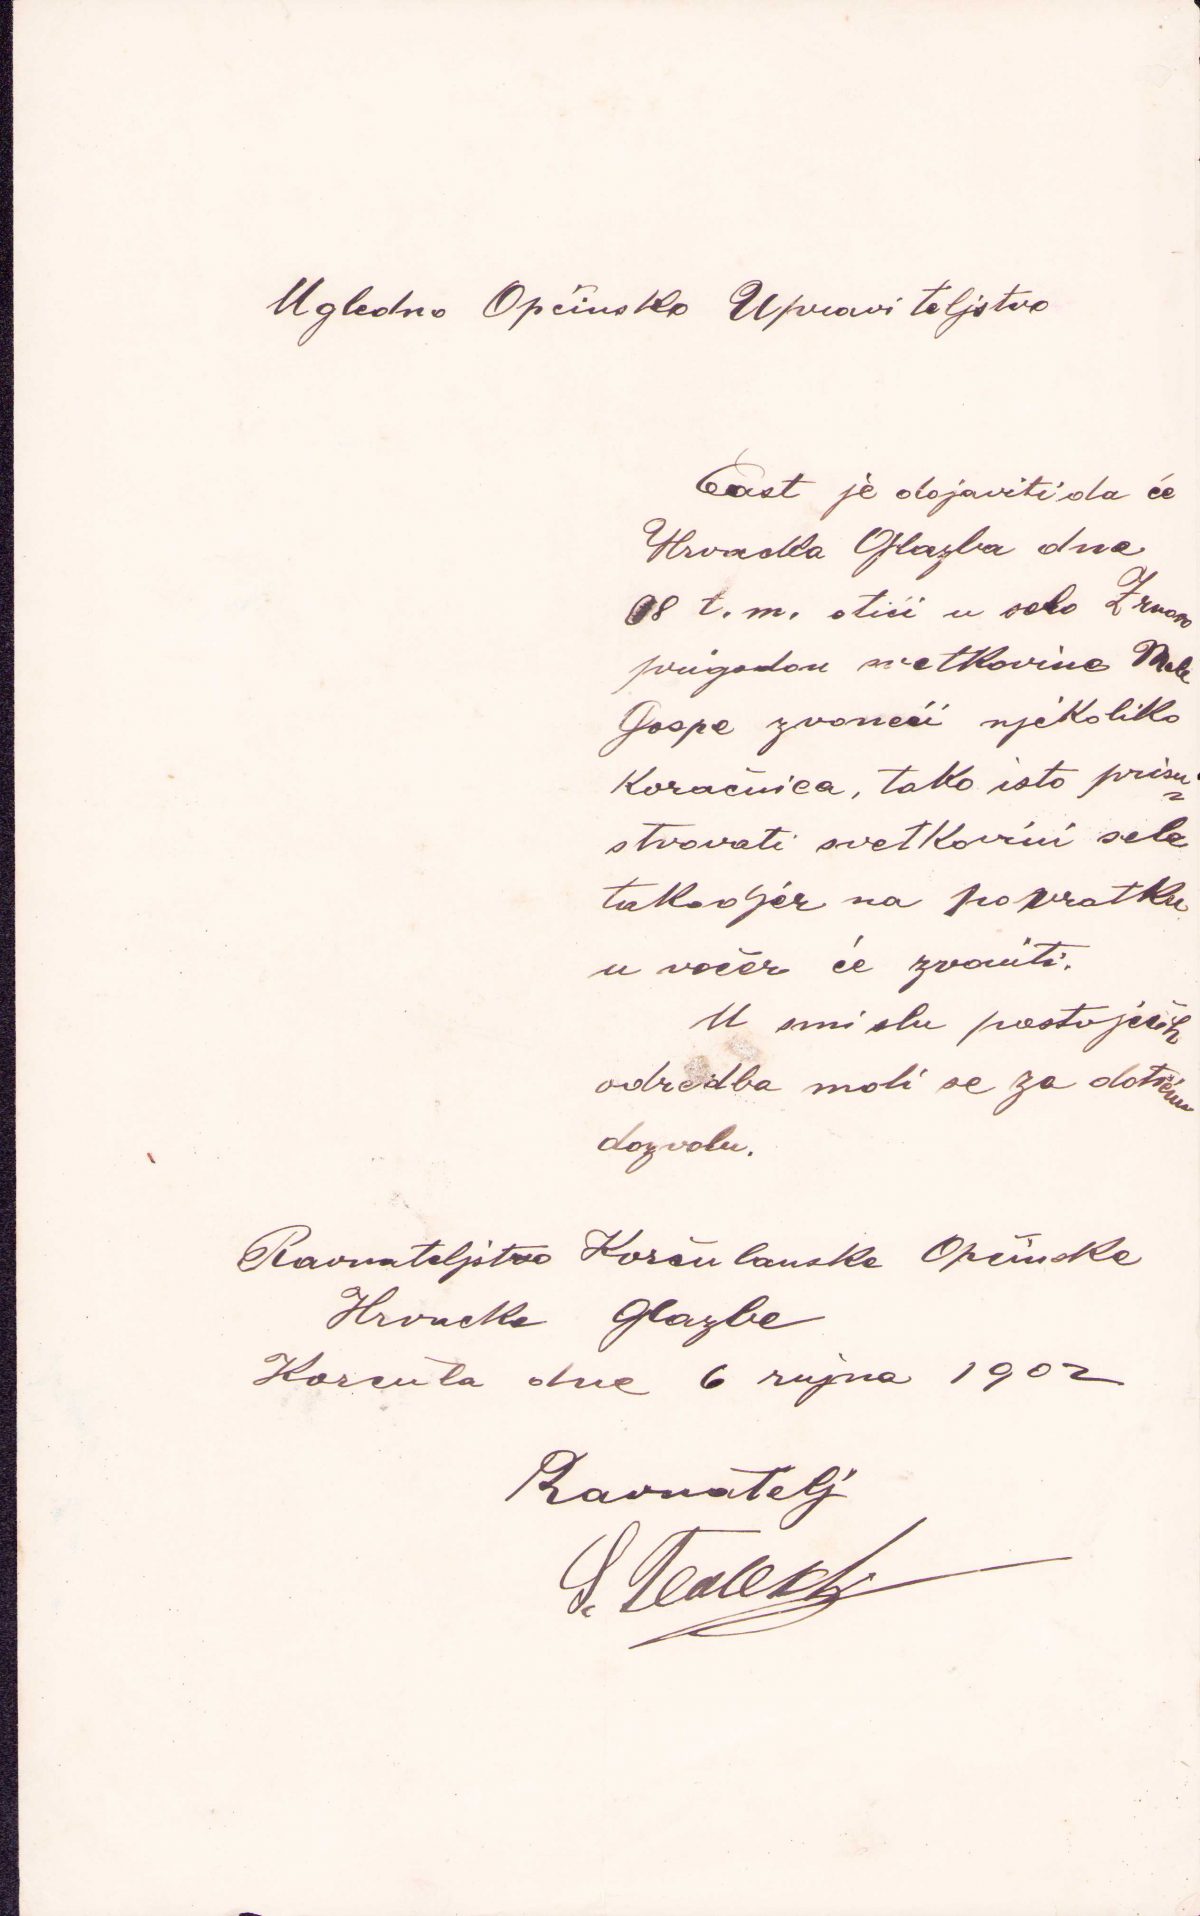 Ugledno Općinsko Upraviteljstvo
Čast je dojaviti da će
Hrvacka Glazba dne
08 t. m. otići u selo Žrnovo
prigodon svetkovine Male
Gospe zvoneći njekoliko
koračnica, tako isto prisu-
stvovati svetkovini sela
takodjer na povratku
u večer će zvoniti.
U smislu postojećih
odredba moli se za dotičnu
dozvolu.
Ravnateljstvo Korčulanske Općinske
Hrvacke Glazbe
Korčula dne 6 rujna 1902
Ravnatelj
S.